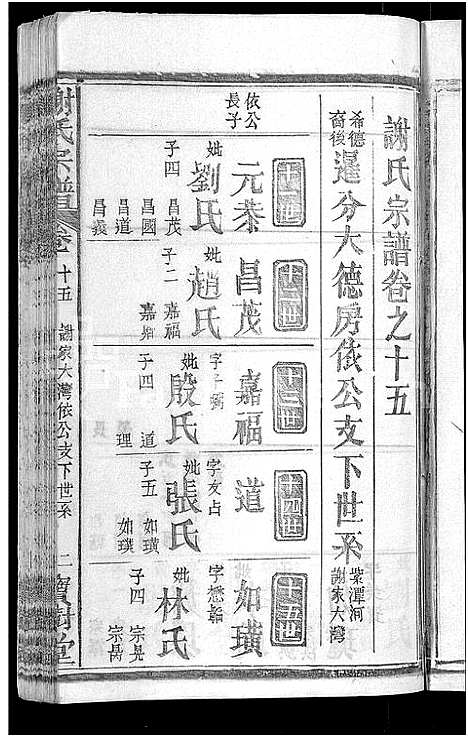 謝氏宗譜卷之十五
希德裔後 暹分大德房依公支下世系 紫潭河謝家大灣
十一世
元恭
依公長子
妣劉氏
子四 昌茂 昌國 昌道 昌義
十二世
昌茂
妣趙氏
子二 嘉福
十三世
嘉福
字子
妣殷氏
子四 道 理
十四世
道
字友占
妣張氏
子五 如璜 如璞
十五世
如璜
字懋
妣林氏
子四 宗晃 宗昺
謝氏宗譜 卷十五 謝家大灣依公支下世系 二 寶樹堂